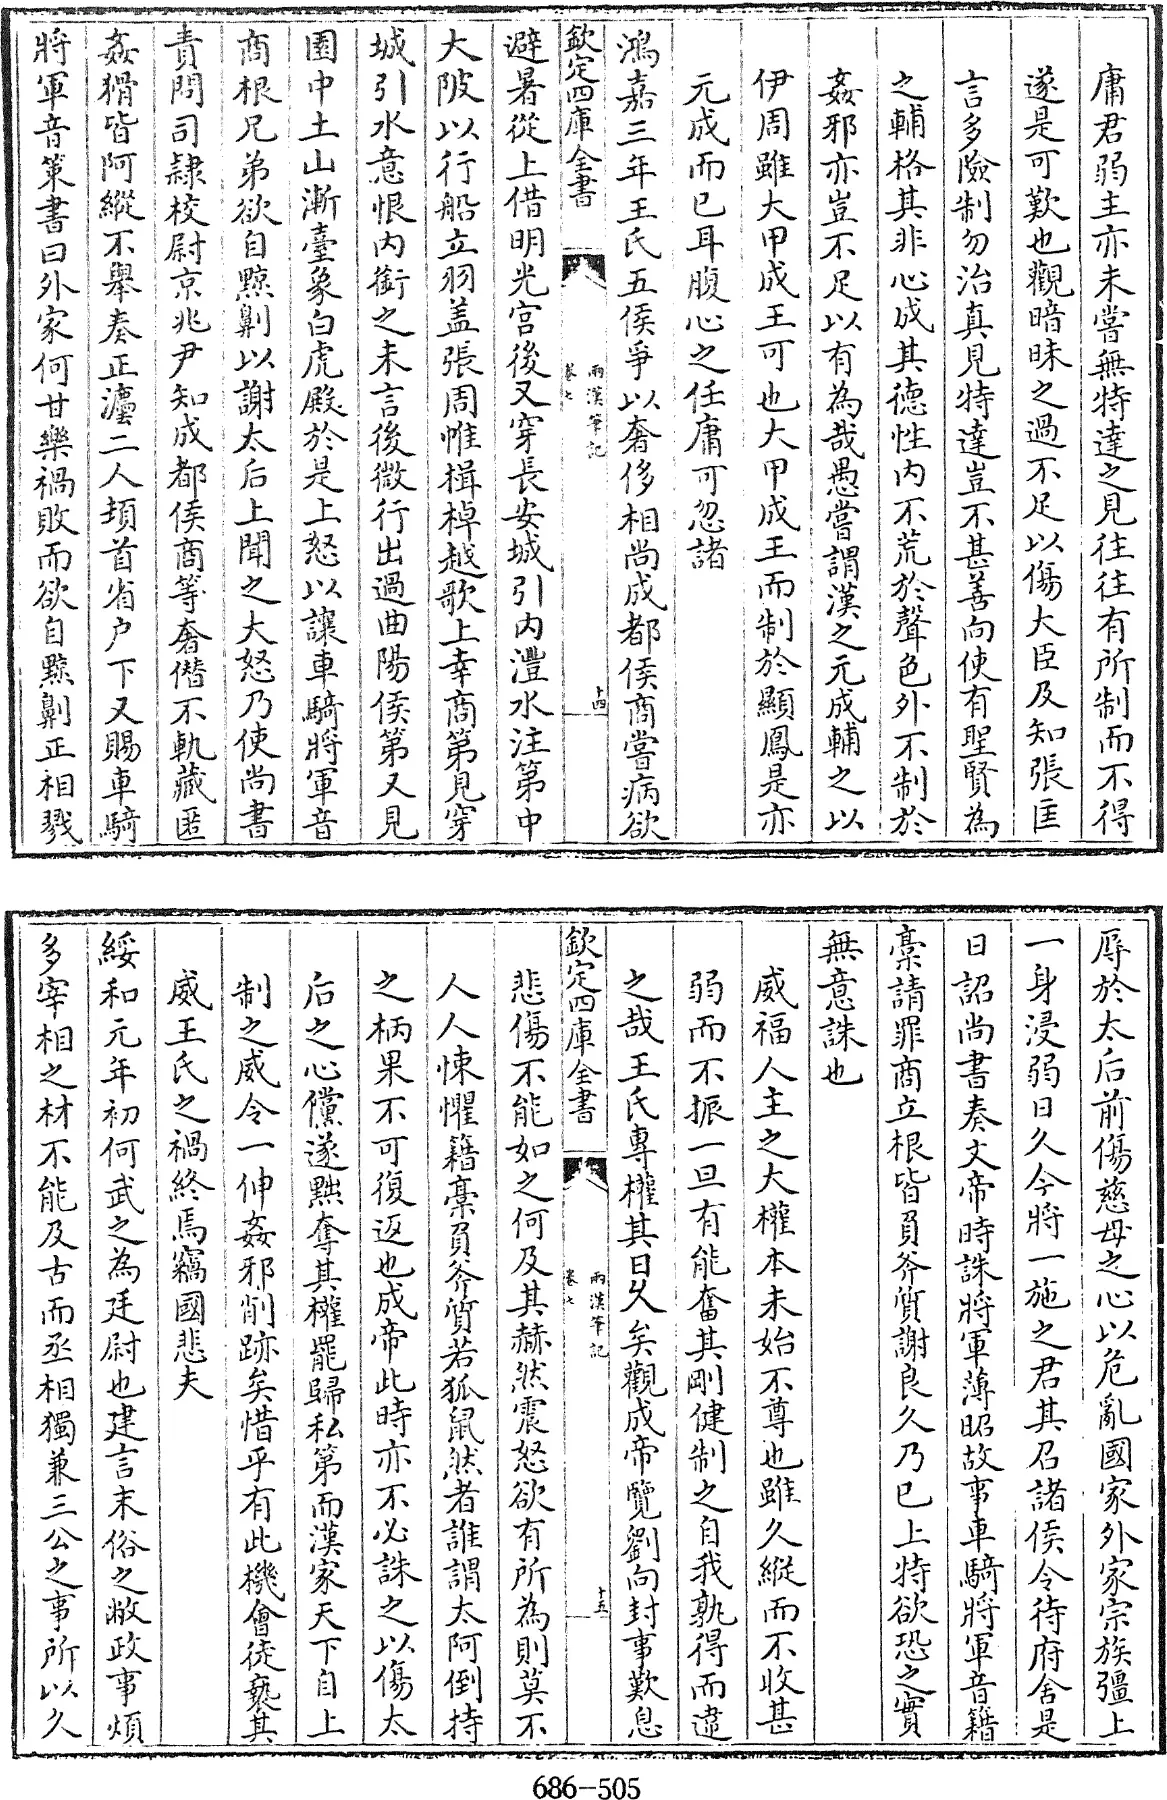 庸君弱主亦未嘗無特達之見往往有所制而不得
遂是可歎也觀暗昧之過不足以傷大臣及知張匡
言多險制勿治真見特達豈不甚善向使有聖賢為
之輔格其非心成其德性内不荒於聲色外不制於
姦邪亦豈不足以有為哉愚嘗謂漢之元成輔之以
伊周雖大甲成王可也大甲成王而制於顯鳳是亦
元成而已耳腹心之任庸可忽諸
鴻嘉三年王氏五侯爭以奢侈相尚成都侯商嘗病欲
欽定四庫全書
兩漢筆記
卷七
十四
避暑從上借明光宫後又穿長安城引内灃水注第中
大陂以行船立羽盖張周帷楫棹越歌上幸商第見穿
城引水意恨内銜之未言後微行出過曲陽侯第又見
園中土山漸臺象白虎殿於是上怒以讓車騎將軍音
商根兄弟欲自黥劓以謝太后上聞之大怒乃使尚書
責問司隷校尉京兆尹知成都侯商等奢僭不軌藏匿
姦猾皆阿縱不舉奏正灋二人頓首省户下又賜車騎
將軍音策書曰外家何甘樂禍敗而欲自黥劓正相戮
辱於太后前傷慈母之心以危亂國家外家宗族彊上
一身浸弱日久今將一施之君其召諸侯令待府舍是
日詔尚書奏文帝時誅將軍薄昭故事車騎將軍音籍
藁請罪商立根皆負斧質謝良久乃已上特欲恐之實
無意誅也
威福人主之大權本未始不尊也雖久縱而不收甚
弱而不振一旦有能奮其剛健制之自我孰得而違
之哉王氏專權其日久矣觀成帝覽劉向封事歎息
欽定四庫全書
兩漢筆記
卷七
十五
悲傷不能如之何及其赫然震怒欲有所為則莫不
人人悚懼籍藁負斧質若狐鼠然者誰謂太阿倒持
之柄果不可復返也成帝此時亦不必誅之以傷太
后之心儻遂黜奪其權罷歸私第而漢家天下自上
制之威令一伸姦邪削跡矣惜乎有此機會徒褻其
威王氏之禍終焉竊國悲夫
綏和元年初何武之為廷尉也建言末俗之敝政事煩
多宰相之材不能及古而丞相獨兼三公之事所以久
686-505